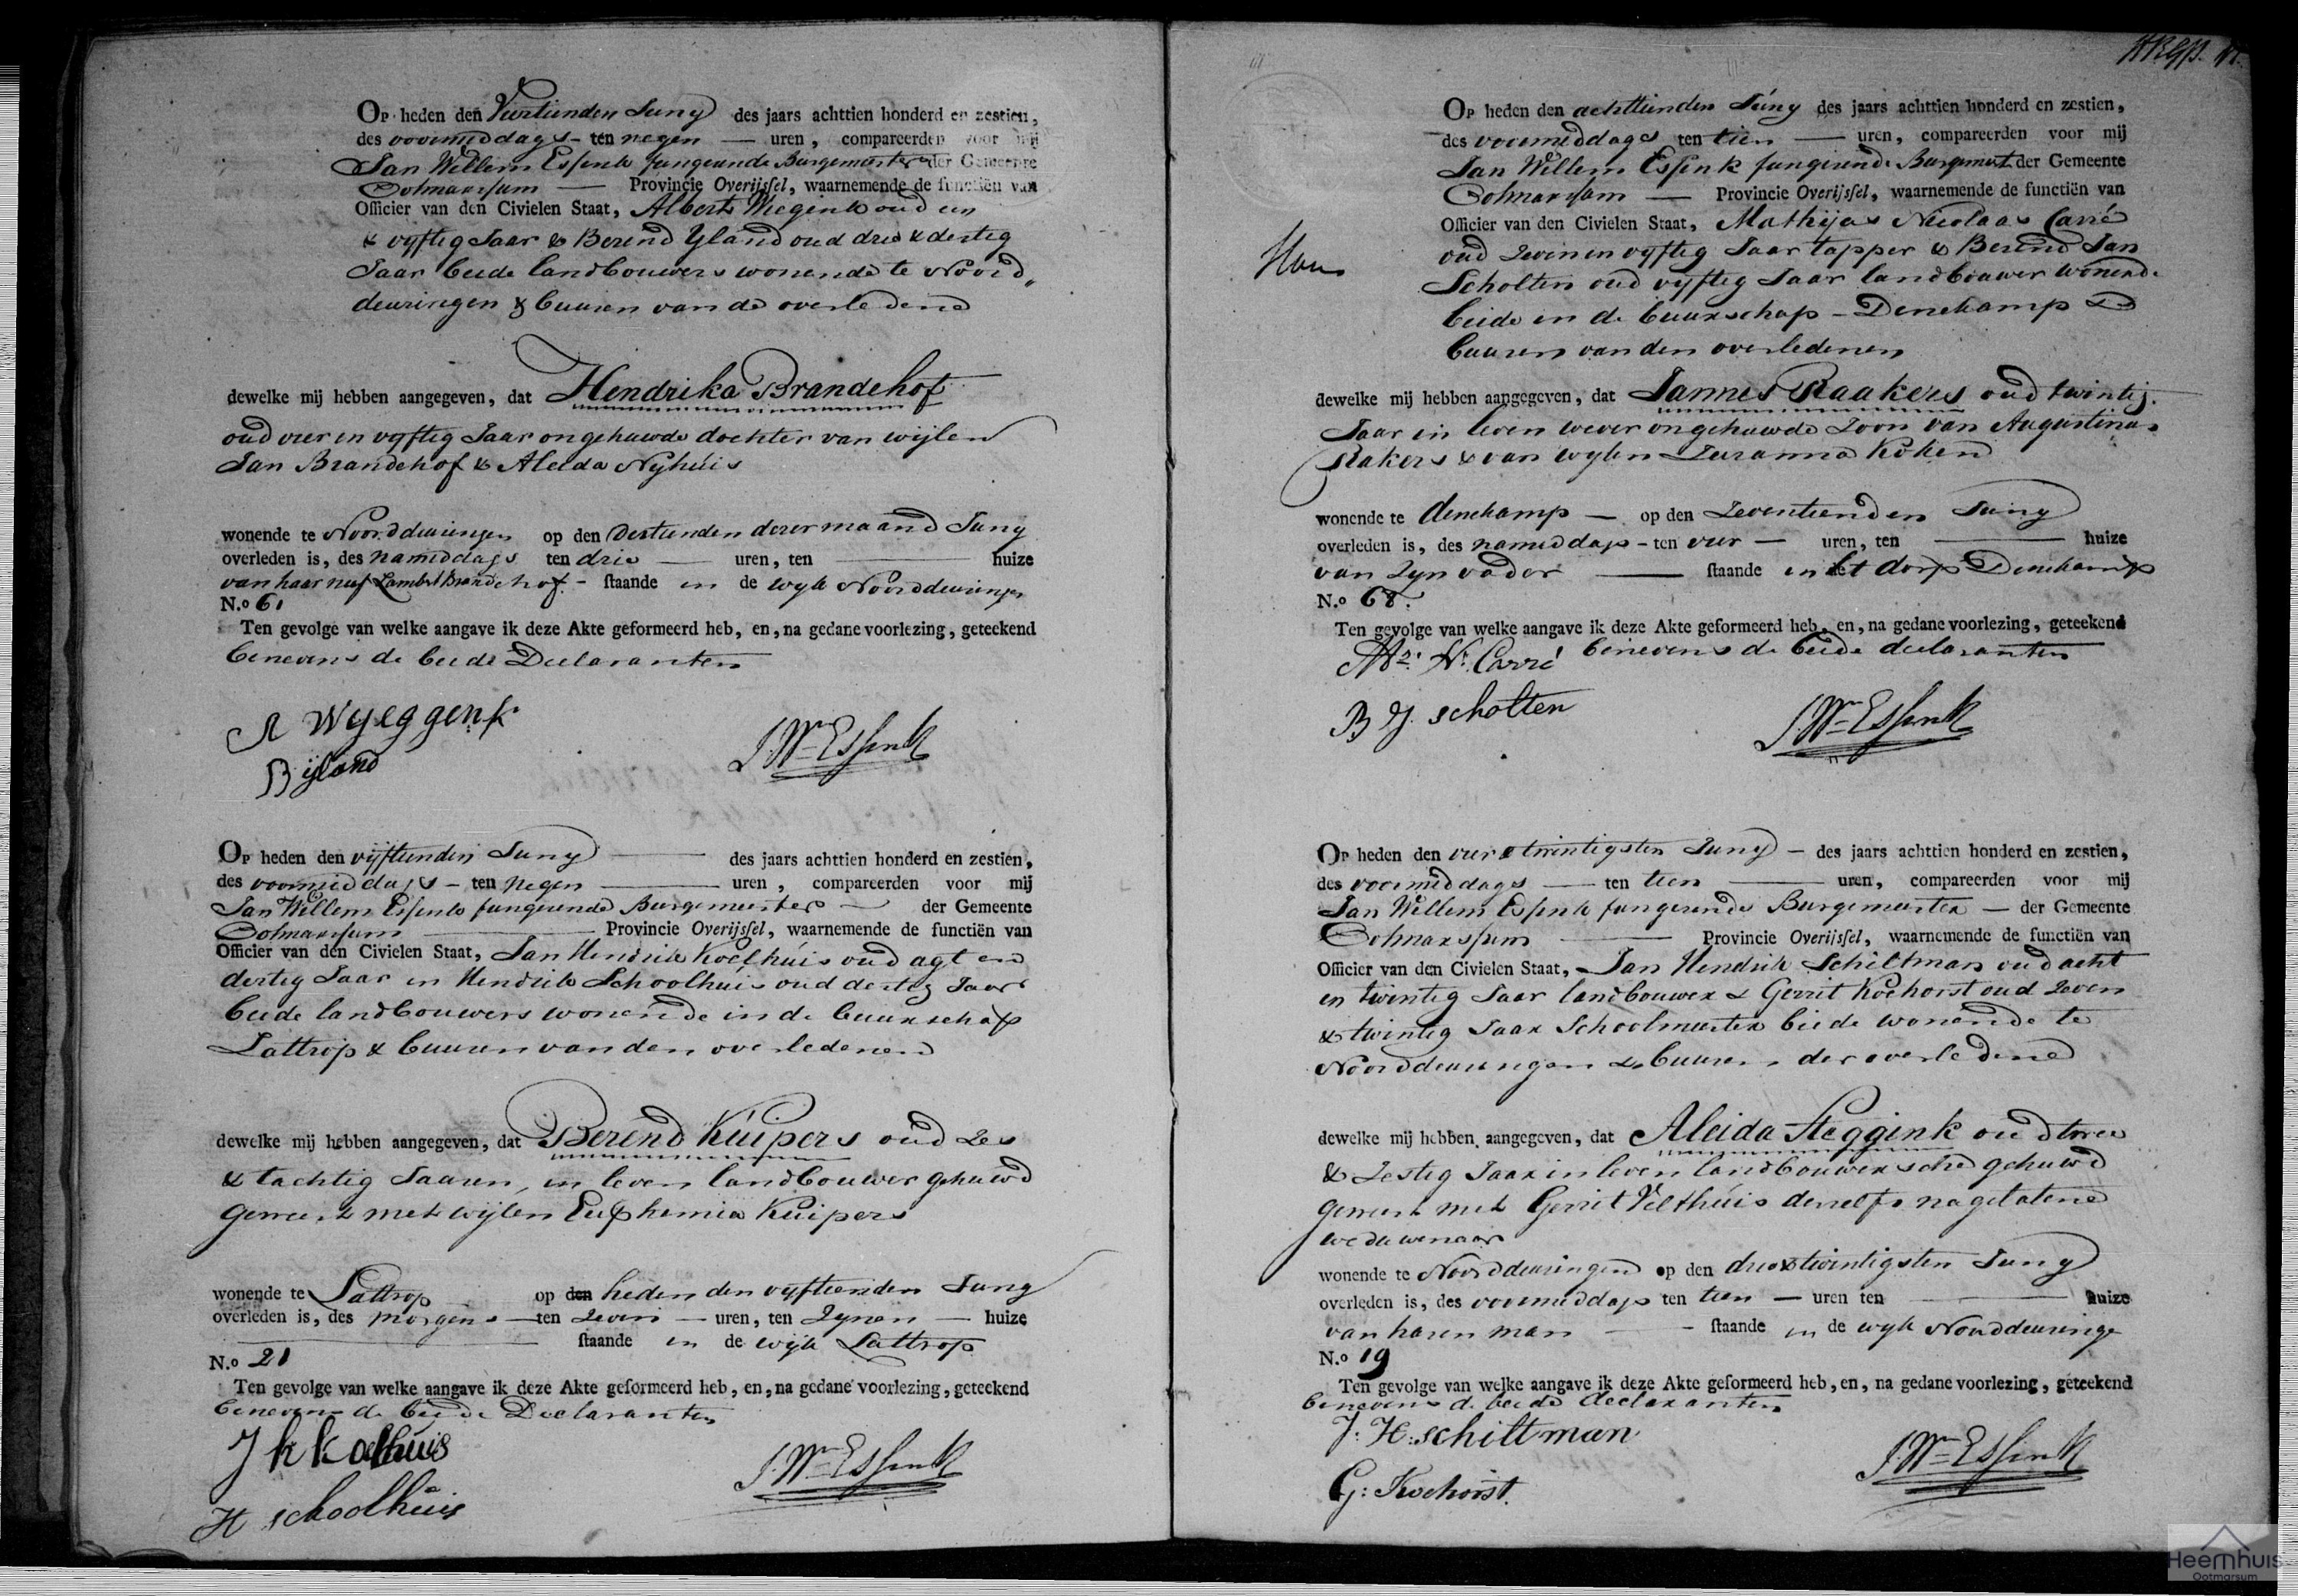 Op heden den Viertienden Juny des jaars achttien honderd en zestien,
des voormiddags - ten negen — uren, compareerden voor mij
Jan Willem Essink fungerende Burgemeester der Gemeente
Ootmarssum — Provincie Overijssel, waarnemende de functiën van
Officier van den Civielen Staat, Albert Wiegink oud een
& vyftig Jaar & Berend Yland oud drie & dertig
Jaar beide landbouwers wonende te Noord„
deuringen & buuren van de overledene
dewelke mij hebben aangegeven, dat Hendrika Brandehof
oud vier en vyftig Jaar ongehuwde dochter van wijlen
Jan Brandehof & Aleida Nyhuis
wonende te Noorddeuringen op den dertienden dezer maand Juny
overleden is, des namiddags ten drie — uren, ten — huize
van haar neef Lambert Brandehof - staande in de wyk Noorddeuringen
N.o 61
Ten gevolge van welke aangave ik deze Akte geformeerd heb, en, na gedane voorlezing, geteekend
benevens de beide Declaranten
A Wyeggenk
B ijland
J. Wm Essink
Op heden den vijftienden Juny — des jaars achttien honderd en zestien,
des voormiddags - ten negen — uren, compareerden voor mij
Jan Willem Essink fungerende Burgemeester — der Gemeente
Ootmarssum — Provincie Overijssel, waarnemende de functiën van
Officier van den Civielen Staat, Jan Hendrik Koelhuis oud agt en
dertig Jaar en Hendrik Schoolhuis oud dertig Jaar
beide landbouwers wonende in de buurschap
Lattrop & buuren van den overledenen
dewelke mij hebben aangegeven, dat Berend Kuipers oud zes
& tachtig Jaaren, in leven landbouwer gehuwd
geweest met wijlen Euphemia Kuipers
wonende te Lattrop op den heden den vyftienden Juny
overleden is, des morgens — ten zeven — uren, ten zynen — huize
— staande in de wijk Lattrop
N.o 21
Ten gevolge van welke aangave ik deze Akte geformeerd heb, en, na gedane voorlezing, geteekend
benevens de beide Declaranten
J h Koelhuis
H schoolhuis
J. Wm Essink
Op heden den achttienden Juny des jaars achttien honderd en zestien,
des voormiddags ten tien — uren, compareerden voor mij
Jan Willem Essink fungerende Burgemeest. der Gemeente
Ootmarssum — Provincie Overijssel, waarnemende de functiën van
Officier van den Civielen Staat, Mathijas Nicolaas Carré
oud zeven en vyftig Jaar tapper & Berend Jan
Scholten oud vyftig Jaar landbouwer wonende
beide in de buurschap - Denekamp &
buuren van den overledenen
dewelke mij hebben aangegeven, dat Jannes Raakers oud twintig
Jaar in leven wever ongehuwde zoon van Augustinus
Rakers & van wylen Zuzanna Koken
wonende te denekamp — op den zeventienden Juny
overleden is, des namiddags - ten vier — uren, ten — huize
van zyn vader — staande in het dorp Denekamp
N.o 68.
Ten gevolge van welke aangave ik deze Akte geformeerd heb, en, na gedane voorlezing, geteekend
benevens de beide declaranten
Ms. Ns. Carré
B J. scholten
J. Wm Essink
Op heden den vier & twintigsten Juny — des jaars achttien honderd en zestien,
des voormiddags — ten tien — uren, compareerden voor mij
Jan Willem Essink fungerende Burgemeester — der Gemeente
Ootmarssum — Provincie Overijssel, waarnemende de functiën van
Officier van den Civielen Staat, Jan Hendrik Schiltman oud acht
en twintig Jaar landbouwer & Gerrit Koehorst oud zeven
& twintig Jaar Schoolmeester beide wonende te
Noorddeuringen & buuren der overledene
dewelke mij hebben aangegeven, dat Aleida Steggink oud twee
& zestig Jaar in leven landbouwersche gehuwd
geweest met Gerrit Velthuis denzelfs nagelatene
weduwenaar
wonende te Noorddeuringen op den drie & twintigsten Juny
overleden is, des voormiddags ten tien — uren ten — huize
van haren man — staande in de wyk Noorddeuringe
N.o 19
Ten gevolge van welke aangave ik deze Akte geformeerd heb, en, na gedane voorlezing, geteekend
benevens de beide declaranten
J: H: schiltman
G: Koehorst.
J. Wm Essink
Heemhuis
Ootmarsum